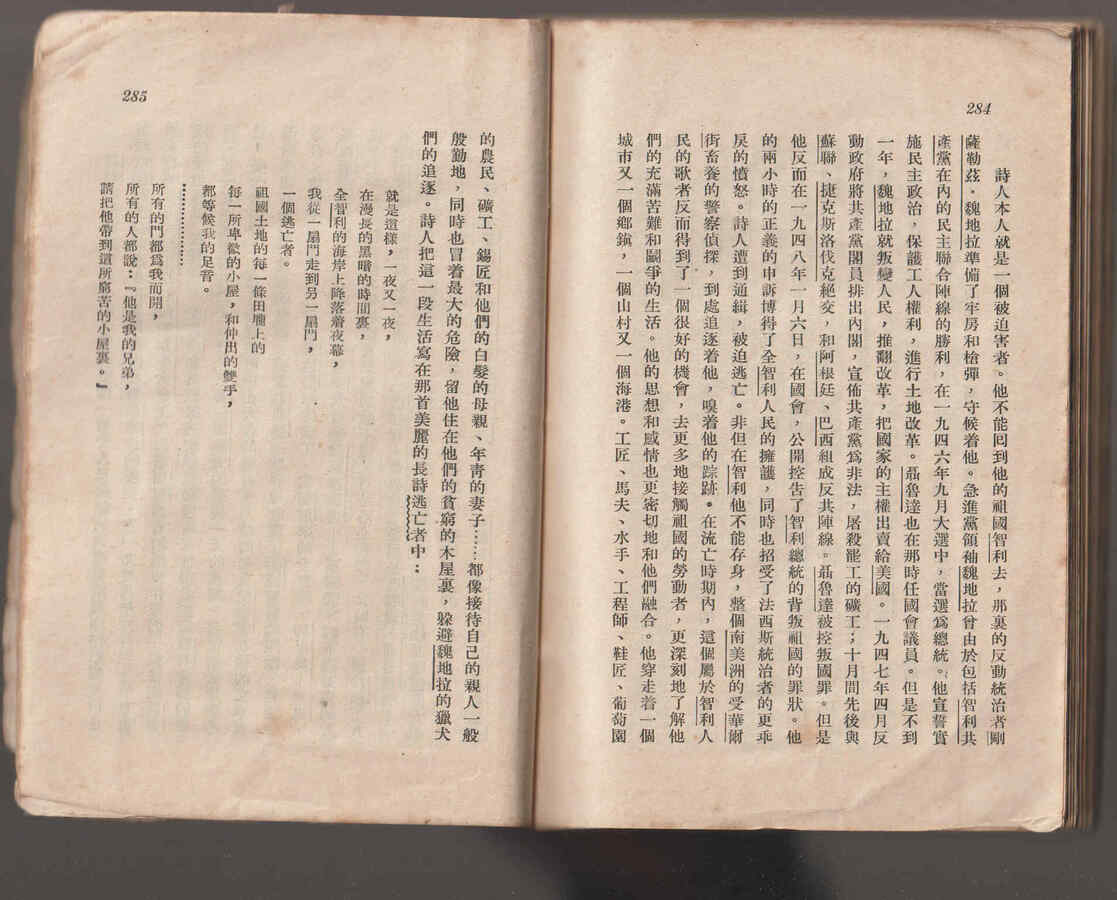 284
詩人本人就是一個被迫害者。他不能回到他的祖國智利去，那裏的反動統治者剛
薩勒茲·魏地拉準備了牢房和槍彈，守候着他。急進黨領袖魏地拉曾由於包括智利共
產黨在內的民主聯合陣線的勝利，在一九四六年九月大選中，當選爲總統。他宣誓實
施民主政治，保護工人權利，進行土地改革。聶魯達也在那時任國會議員。但是不到
一年，魏地拉就叛變人民，推翻改革，把國家的主權出賣給美國。一九四七年四月反
動政府將共產黨閣員排出內閣，宣佈共產黨爲非法，屠殺罷工的礦工；十月間先後與
蘇聯、捷克斯洛伐克絕交，和阿根廷、巴西組成反共陣線。聶魯達被控叛國罪。但是
他反而在一九四八年一月六日，在國會，公開控告了智利總統的背叛祖國的罪狀。他
的兩小時的正義的申訴博得了全智利人民的擁護，同時也招受了法西斯統治者的更乖
戾的憤怒。詩人遭到通緝，被迫逃亡。非但在智利他不能存身，整個南美洲的受華爾
街畜養的警察偵探，到處追逐着他，嗅着他的踪跡。在流亡時期內，這個屬於智利人
民的歌者反而得到了一個很好的機會，去更多地接觸祖國的勞動者，更深刻地了解他
們的充滿苦難和鬭爭的生活。他的思想和感情也更密切地和他們融合。他穿走着一個
城市又一個鄉鎭，一個山村又一個海港。工匠、馬夫、水手、工程師、鞋匠、葡萄園
285
的農民、礦工、錫匠和他們的白髮的母親、年靑的妻子……都像接待自己的親人一般
般勤地，同時也冒着最大的危險，留他住在他們的貧窮的木屋裏，躲避魏地拉的獵犬
們的追逐。詩人把這一段生活寫在那首美麗的長詩逃亡者中：
就是這樣，一夜又一夜，
在漫長的黑暗的時間裏，
全智利的海岸上降落着夜幕，
我從一扇門走到另一扇門，
一個逃亡者。
祖國土地的每一條田隴上的
每一所卑微的小屋，和伸出的雙手，
都等候我的足音。
………………
所有的門都爲我而開，
所有的人都說：『他是我的兄弟，
請把他帶到這所窮苦的小屋裏。』